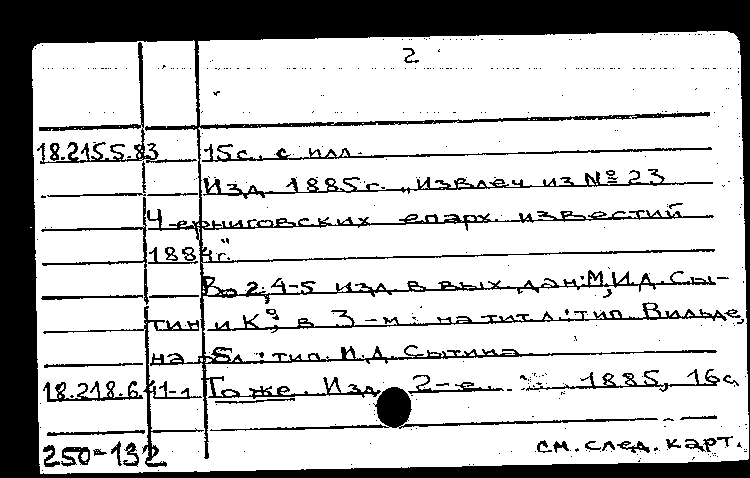 2
18.215.5.83 15с. с илл.
Изд. 1885г. „Извлеч из № 23
Черниговских епарх. известий
1884г."
Во 2, 4-5 изд. в вых. дан: М, И.Д. Сы-
тин и К°; в 3-м: на тит. л.: тип. Вильде,
на обл.: тип. И.Д. Сытина
18.218.6.41-1 То же. Изд. 2-е. 1885, 16с.
250-132 см. след. карт.